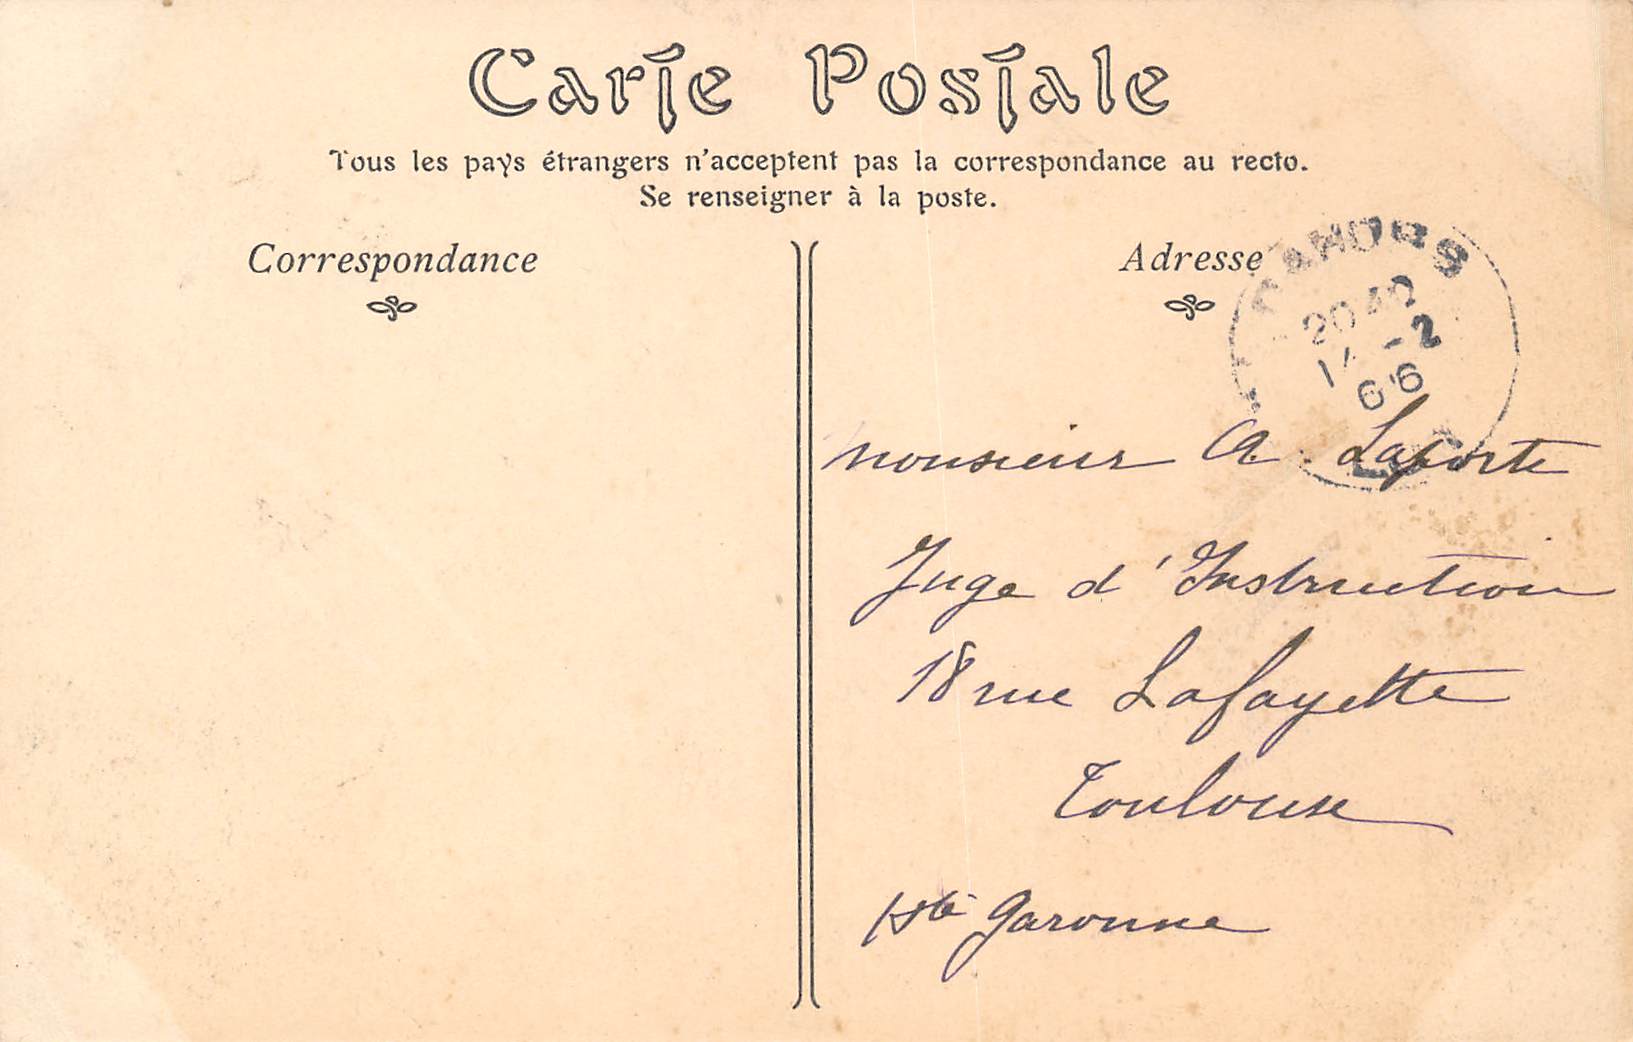 Carte Postale
Tous les pays étrangers n'acceptent pas la correspondance au recto.
Se renseigner à la poste.
Correspondance
Adresse
CAHORS
20 40
14 -2
06
monsieur A. Laporte
Juge d'Instruction
18 rue Lafayette
Toulouse
Hte Garonne